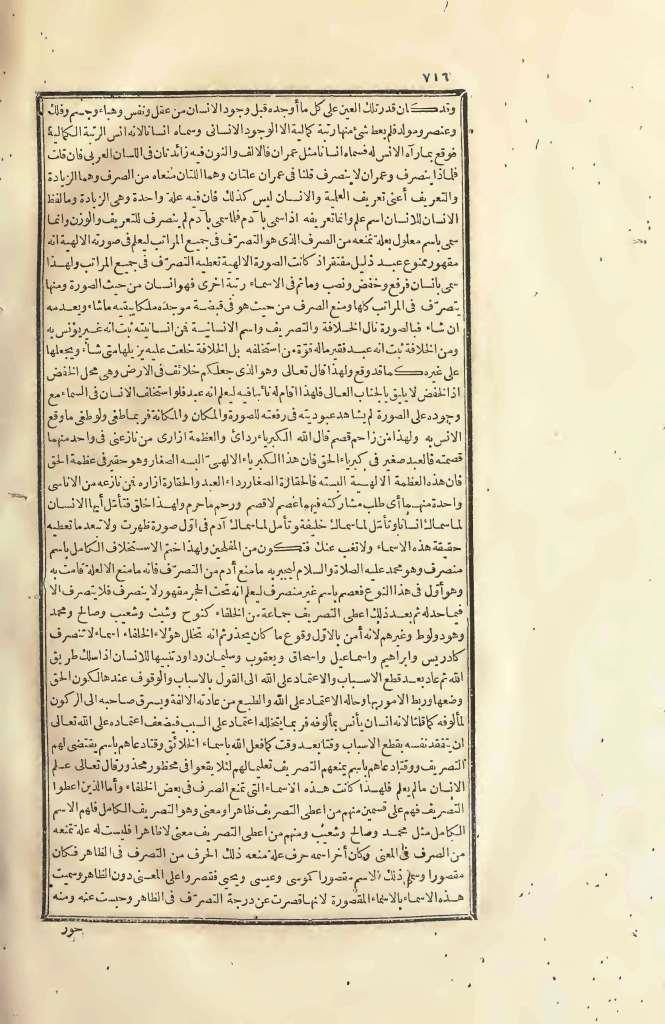 ٧١٦
وقد كان قدر تلك العين على كل ما أوجده قبل وجود الانسان من عقل ونفس وهباء وجسم وفلك
وعنصر ومولد فلم يعط شئ منها رتبة كمالية الا الوجود الانسانى وسماه انسانا لانه انس الرتبة الكمالية
فوقع بما رآه الانس له فسماه انسانا مثل عمران فالالف والنون فيه زائدتان فى اللسان العربى فان قلت
فلماذا ينصرف وعمران لا ينصرف قلنا فى عمران علتان وهما اللتان منعاه من الصرف وهما الزيادة
والتعريف أعنى تعريف العلمية والانسان ليس كذلك فان فيه علة واحدة وهى الزيادة وما لفظ
الانسان للانسان اسم علم وانما تعريفه اذا سمى بآدم فلما سمى بآدم لم ينصرف للتعريف والوزن وانما
سمى باسم معلول بعلة تمنعه من الصرف الذى هو التصرّف فى جميع المراتب ليعلم فى صورته الالهية انه
مقهور ممنوع عبد ذليل مفتقر اذ كانت الصورة الالهية تعطيه التصرّف فى جميع المراتب ولهذا
سمى بانسان فرفع وخفض ونصب وما ثم فى الاسماء رتبة اخرى فهو انسان من حيث الصورة ومنها
يتصرّف فى المراتب كلها ومنع الصرف من حيث هو فى قبضة موجده ملك يبقيه ما شاء ويعدمه
ان شاء فبالصورة نال الخلافة والتصريف واسم الانسانية فمن انسانيته ثبت انه غير يؤنس به
ومن الخلافة ثبت انه عبد فقير ماله قوّة من استخلفه بل الخلافة خلعت عليه يزيلها متى شاء ويجعلها
على غيره كما قد وقع ولهذا قال تعالى وهو الذى جعلكم خلائف فى الارض وهى محل الخفض
اذ الخفض لا يليق بالجناب العالى فلهذا أقام له نائبا فيه ليعلم انه عبد فلو استخلف الانسان فى السماء مع
وجوده على الصورة لم يشاهد عبوديته فى رفعته للصورة والمكان والمكانة فربما طغى ولو طغى ما وقع
الانس به ولهذا من زاحم قصم قال الله الكبرياء ردائى والعظمة ازارى من نازعنى فى واحد منهما
قصمته فالعبد صغير فى كبرياء الحق فان هذا الكبرياء الالهى البسه الصغار وهو حقير فى عظمة الحق
فان هذه العظمة الالهية البسته فالحقارة الصغار رداء العبد والحقارة ازاره فمن نازعه من الاناسى
واحدة منهما أى طلب مشاركته فيهما عصم لا قصم ورحم ما حرم ولهذا خلق فتأمّل أيها الانسان
لما سماك انسانا وتأمّل لما سماك خليفة وتأمل لما سماك آدم فى اوّل صورة ظهرت ولا تتعد ما تعطيه
حقيقة هذه الاسماء ولا تغب عنك فتكون من المفلحين ولهذا ختم الاستخلاف الكامل باسم
منصرف وهو محمد عليه الصلاة والسلام ليجبر به ما منع آدم من التصرّف فانه ما منع الا لعلة قامت به
وهو أوّل فى هذا النوع فعصم باسم غير منصرف ليعلم انه تحت الحجر مقهور لا ينصرف فلا يتصرف الا
فيما حد له ثم بعد ذلك اعطى التصريف جماعة من الخلفاء كنوح وشيث وشعيب وصالح ومحمد
وهود ولوط وغيرهم لانه أمن بالاوّل وقوع ما كان يحذر ثم انه تخلل هؤلاء الخلفاء اسماء لا تنصرف
كادريس وابراهيم واسماعيل واسحاق ويعقوب وسليمان وداود تنبيها للانسان اذا سلك طريق
الله ثم عاد بعد قطع الاسباب والاعتماد على الله الى القول بالاسباب والوقوف عندها لكون الحق
وضعها وربط الامور بها وحاله الاعتماد على الله والطبع من عادته الالفة ويسرق صاحبه الى الركون
لمألوفه كما قلنا لانه انسان يأنس بمألوفه فربما يتخلله اعتماد على السبب فيضعف اعتماده على الله تعالى
ان يتفقد نفسه بقطع الاسباب وقتا بعد وقت كما فعل الله باسماء الخلائق وقتا دعاهم باسم يقتضى لهم
التصريف ووقتا دعاهم باسم يمنعهم التصريف تعليما لهم لئلا يقعوا فى محظور محذور قال تعالى علم
الانسان ما لم يعلم فلهذا كانت هذه الاسماء التى تمنع الصرف فى بعض الخلفاء وأما الذين اعطوا
التصريف فهم على قسمين منهم من اعطى التصريف ظاهرا ومعنى وهو التصريف الكامل فلهم الاسم
الكامل مثل محمد وصالح وشعيب ومنهم من اعطى التصريف معنى لا ظاهرا فليست له علة تمنعه
من الصرف فى المعنى وكان آخر اسمه حرف علة منعه ذلك الحرف من التصرف فى الظاهر فكان
مقصورا وسمى ذلك الاسم مقصورا كموسى وعيسى ويحيى فقصروا على المعنى دون الظاهر وسميت
هذه الاسماء بالاسماء المقصورة لانها قصرت عن درجة التصرّف فى الظاهر وحبست عنه ومنه
حور